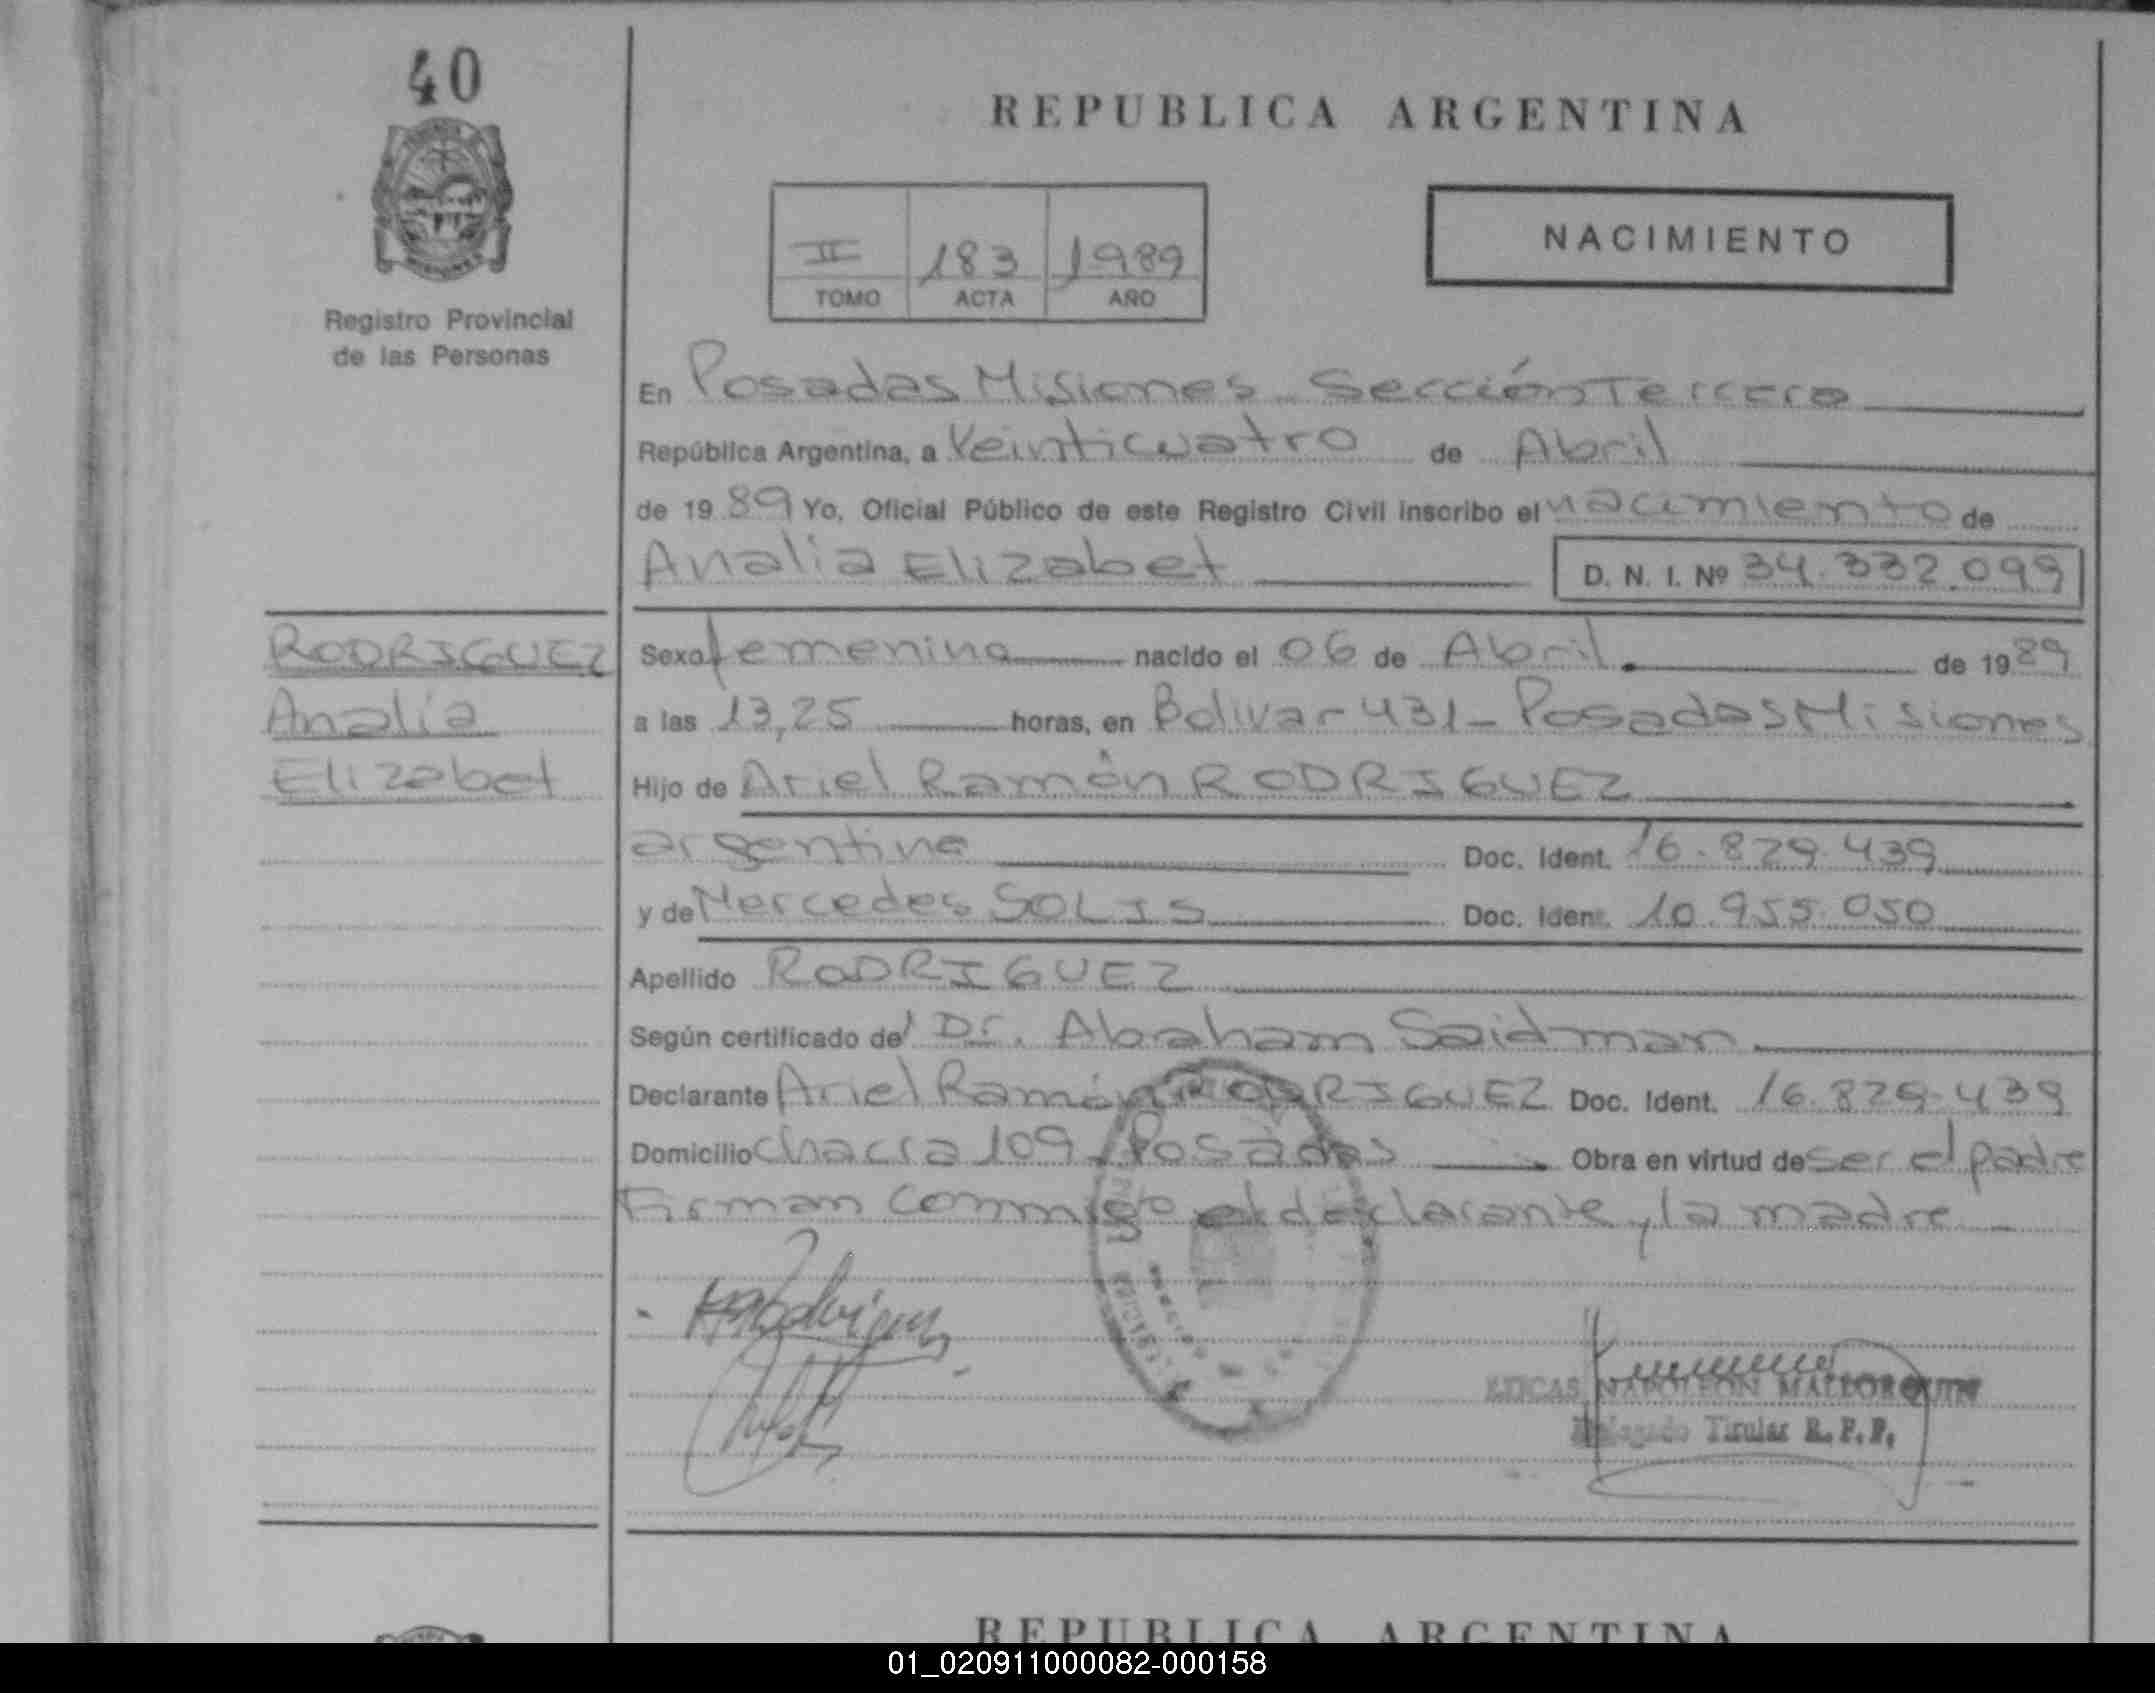 40
REPUBLICA ARGENTINA
II 183 1989
TOMO ACTA AÑO
NACIMIENTO
Registro Provincial
de las Personas
En Posadas Misiones - Sección Tercera
República Argentina, a Veinticuatro de Abril
de 1989 Yo, Oficial Público de este Registro Civil inscribo el nacimiento de
Analia Elizabet D. N. I. Nº 34.332.099
RODRIGUEZ
Analía
Elizabet
Sexo femenina nacido el 06 de Abril de 1989
a las 13,25 horas, en Bolivar 431 - Posadas Misiones
Hijo de Ariel Ramón RODRIGUEZ
argentina Doc. Ident. 16.829.439
y de Mercedes SOLIS Doc. Ident. 10.955.050
Apellido RODRIGUEZ
Según certificado de Dr. Abraham Saidman
Declarante Ariel Ramón RODRIGUEZ Doc. Ident. 16.829.439
Domicilio chacra 109 Posadas Obra en virtud de ser el padre
Firman conmigo el declarante y la madre
NAPOLEON MALLORQUIN
Delegado Titular R. P. P.
REPUBLICA ARGENTINA
01_020911000082-000158